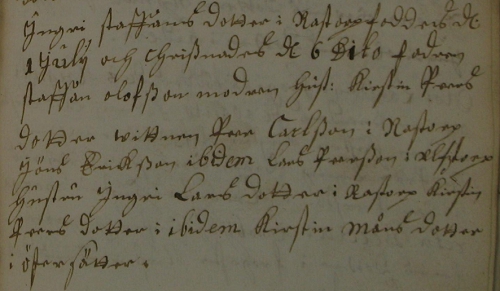 Ingri staffans dotter i Nastorp föddes dE
1 Juli och Christnades dE 6 dito fadren
staffan olofsson modren hust: Kirstin Pers
dotter wittnen Per Carlsson i Nastorp
Jöns Erickson ibidem Lars Persson i Alstorp
hustru Ingri Lars dotter i Nastorp Kirstin
Pers dotter i ibidem Kirstin Måns dotter
i öfersätter.